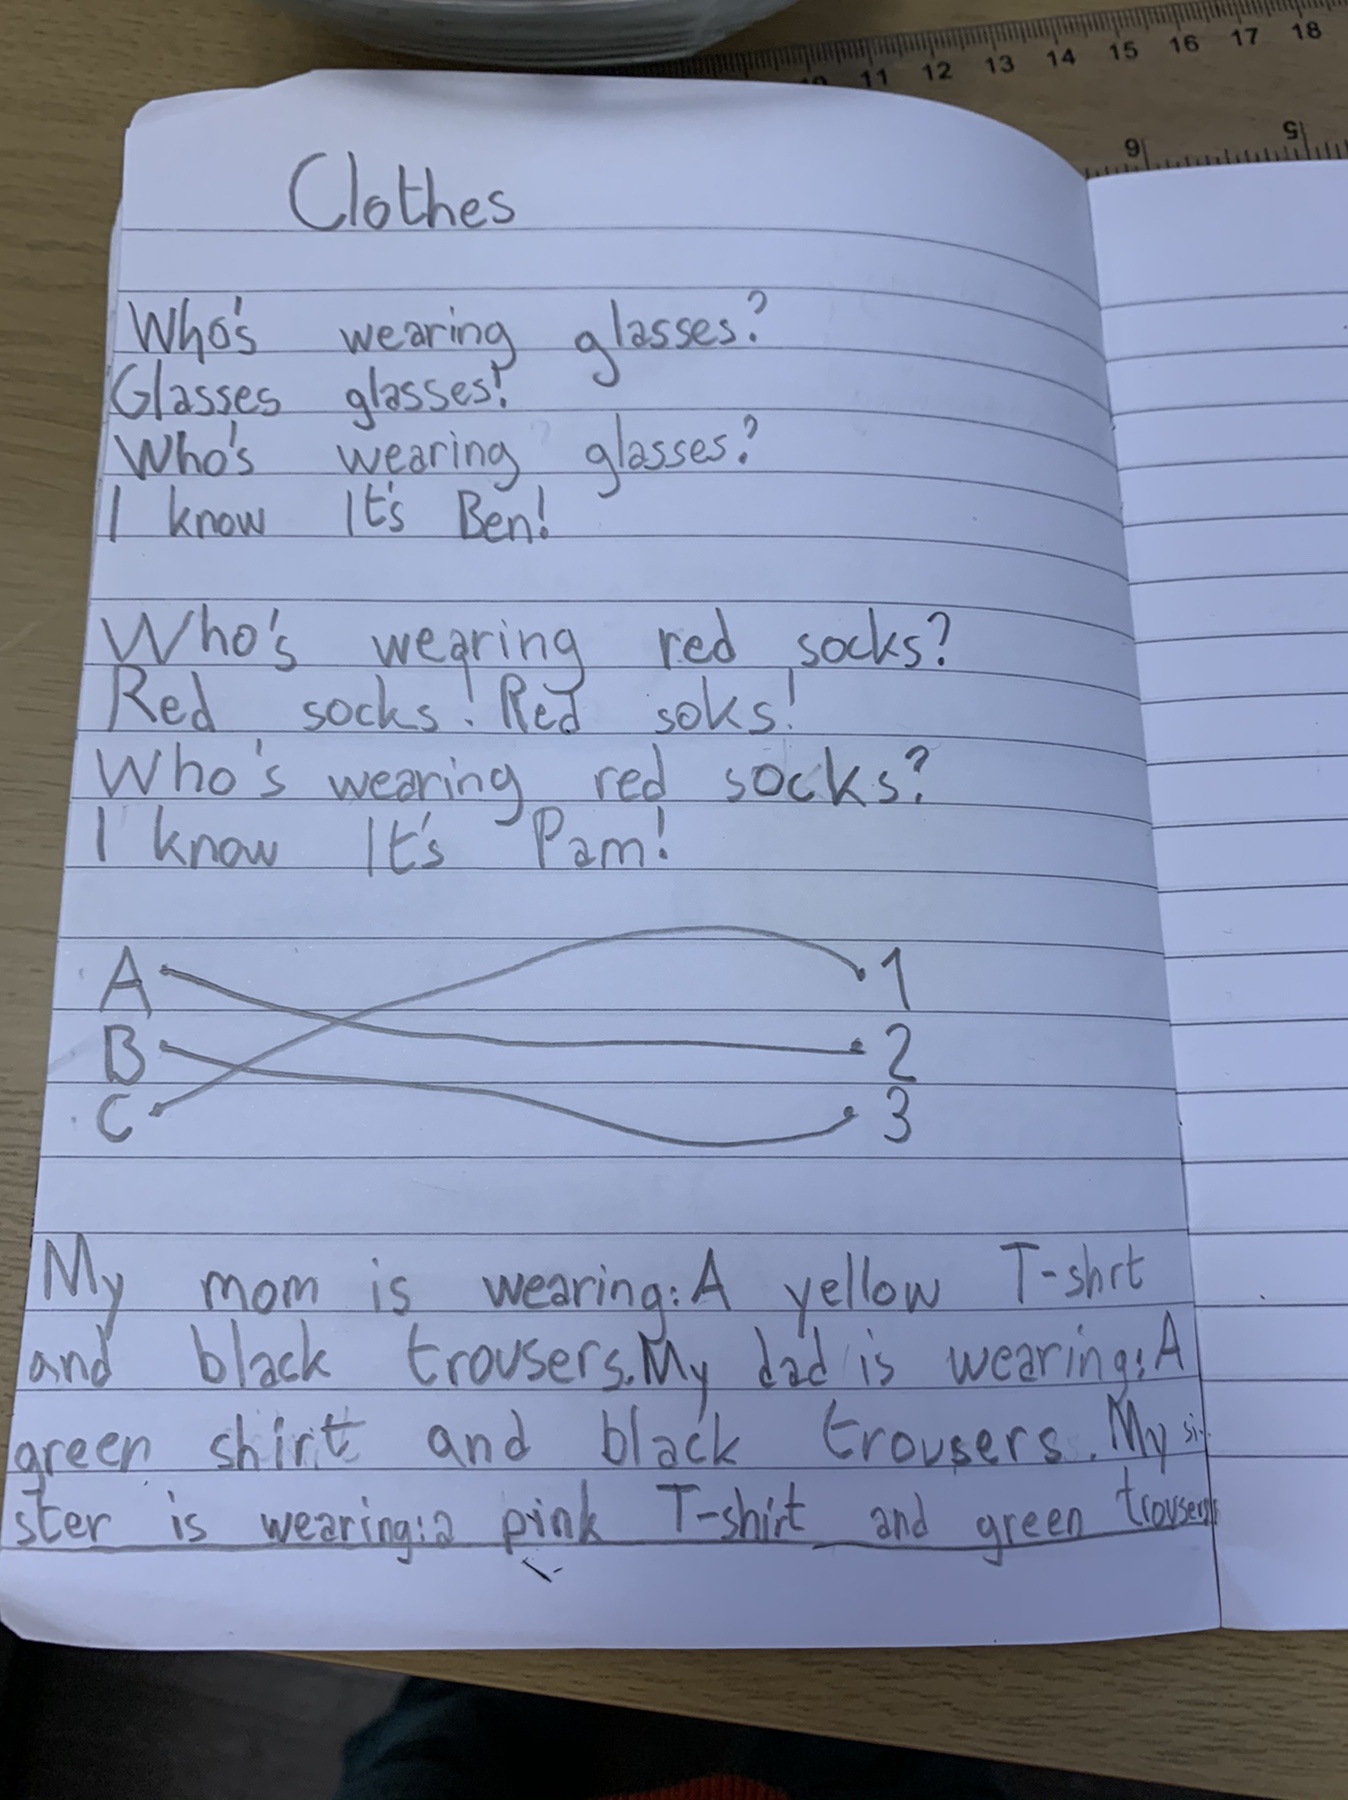 10 11 12 13 14 15 16 17 18
6 5
Clothes
Who's wearing glasses?
Glasses glasses!
Who's wearing glasses?
I know It's Ben!
Who's wearing red socks?
Red socks! Red soks!
Who's wearing red socks?
I know It's Pam!
A 1
B 2
C 3
My mom is wearing: A yellow T-shrt
and black trousers. My dad is wearing: A
green shirt and black trousers. My si-
ster is wearing: a pink T-shirt and green trousers